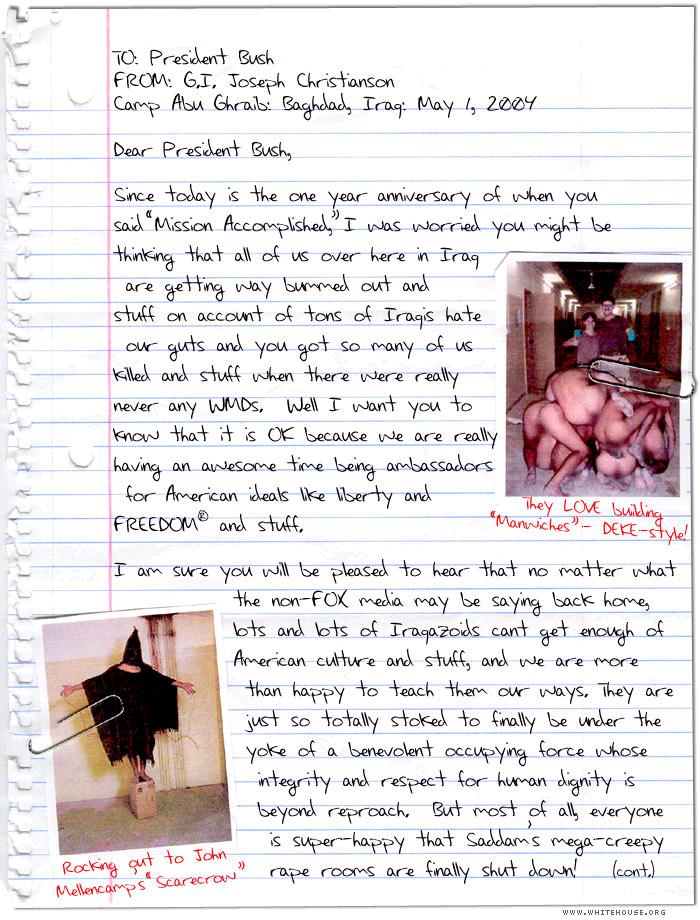 TO: President Bush
FROM: G.I. Joseph Christianson
Camp Abu Ghraib: Baghdad, Iraq: May 1, 2004
Dear President Bush,
Since today is the one year anniversary of when you
said "Mission Accomplished," I was worried you might be
thinking that all of us over here in Iraq
are getting way bummed out and
stuff on account of tons of Iraqis hate
our guts and you got so many of us
killed and stuff when there were really
never any WMDs. Well I want you to
know that it is OK because we are really
having an awesome time being ambassadors
for American ideals like liberty and
FREEDOM® and stuff.
They LOVE building
"Manwiches" - DEKE-style!
I am sure you will be pleased to hear that no matter what
the non-FOX media may be saying back home,
lots and lots of Iraqazoids cant get enough of
American culture and stuff, and we are more
than happy to teach them our ways. They are
just so totally stoked to finally be under the
yoke of a benevolent occupying force whose
integrity and respect for human dignity is
beyond reproach. But most of all, everyone
is super-happy that Saddam's mega-creepy
rape rooms are finally shut down! (cont.)
Rocking out to John
Mellencamp's "Scarecrow"
WWW.WHITEHOUSE.ORG